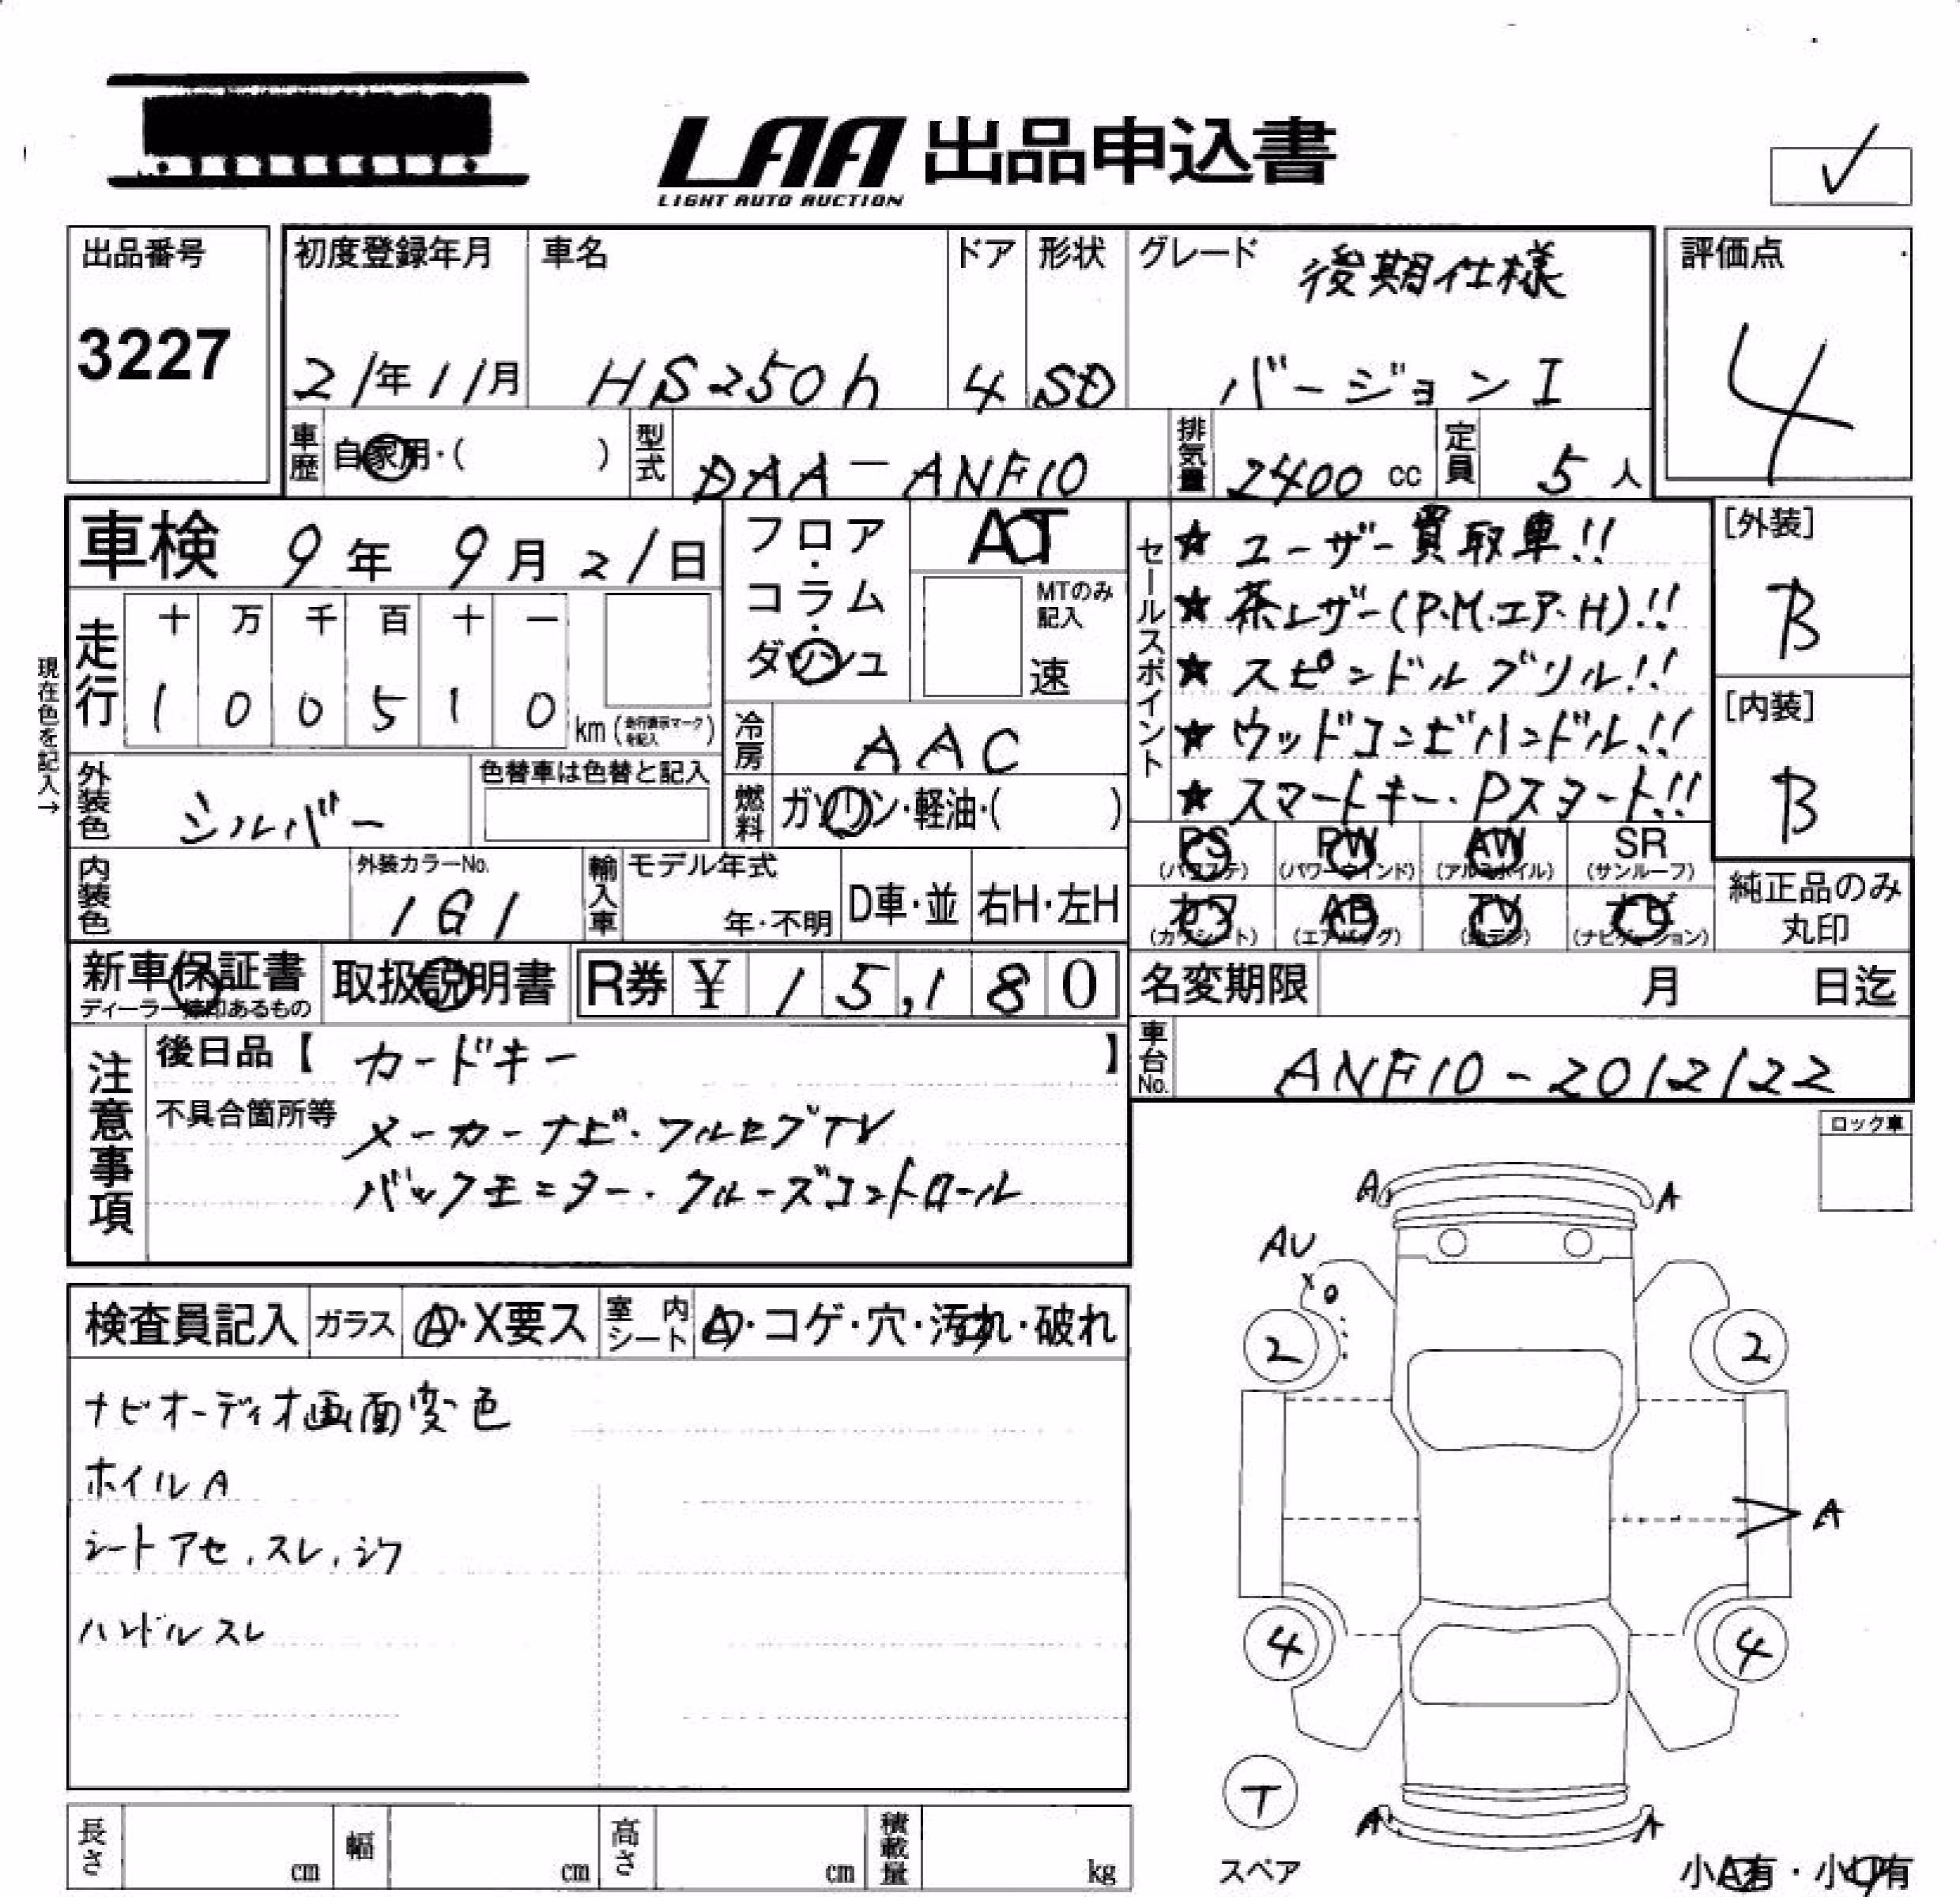 LAA 出品申込書
LIGHT AUTO AUCTION
出品番号
3227
初度登録年月
21年11月
車名
HS250h
ドア
4
形状
SD
グレード 後期仕様
バージョンI
評価点
4
車歴 自家用・( )
型式 DAA-ANF10
排気量 2400 cc
定員 5人
車検 9年9月21日
フロア・コラム・ダッシュ
AT
MTのみ記入
速
セールスポイント
★ユーザー買取車!!
★茶レザー(P.M.エア.H)!!
★スピンドルグリル!!
★ウッドコンビハンドル!!
★スマートキー・Pスタート!!
[外装]
B
[内装]
B
現在色を記入→
走行
十 万 千 百 十 一
1 0 0 5 1 0 km (走行表示マークを記入)
冷房 AAC
外装色 シルバー
色替車は色替と記入
燃料 ガソリン・軽油・( )
内装色
外装カラーNo.
1G1
輸入車
モデル年式
年・不明
D車・並
右H・左H
PS (パワステ)
PW (パワーウインド)
AW (アルミホイル)
SR (サンルーフ)
カワ (カワシート)
AB (エアバッグ)
TV (地デジ)
ナビ (ナビゲーション)
純正品のみ丸印
新車保証書
ディーラー捺印あるもの
取扱説明書
R券 ¥ 15,180
名変期限 月 日迄
車台No. ANF10-2012122
注意事項
後日品【カードキー】
不具合箇所等 メーカーナビ・フルセグTV
バックモニター・クルーズコントロール
ロック車
検査員記入
ガラス A・X要ス
室内シート A・コゲ・穴・汚れ・破れ
ナビオーディオ画面変色
ホイルA
シートアセ、スレ、シワ
ハンドルスレ
A A
AU
X
2 2
A
4 4
T
スペア
A A
小A有・小U有
長さ cm
幅 cm
高さ cm
積載量 kg